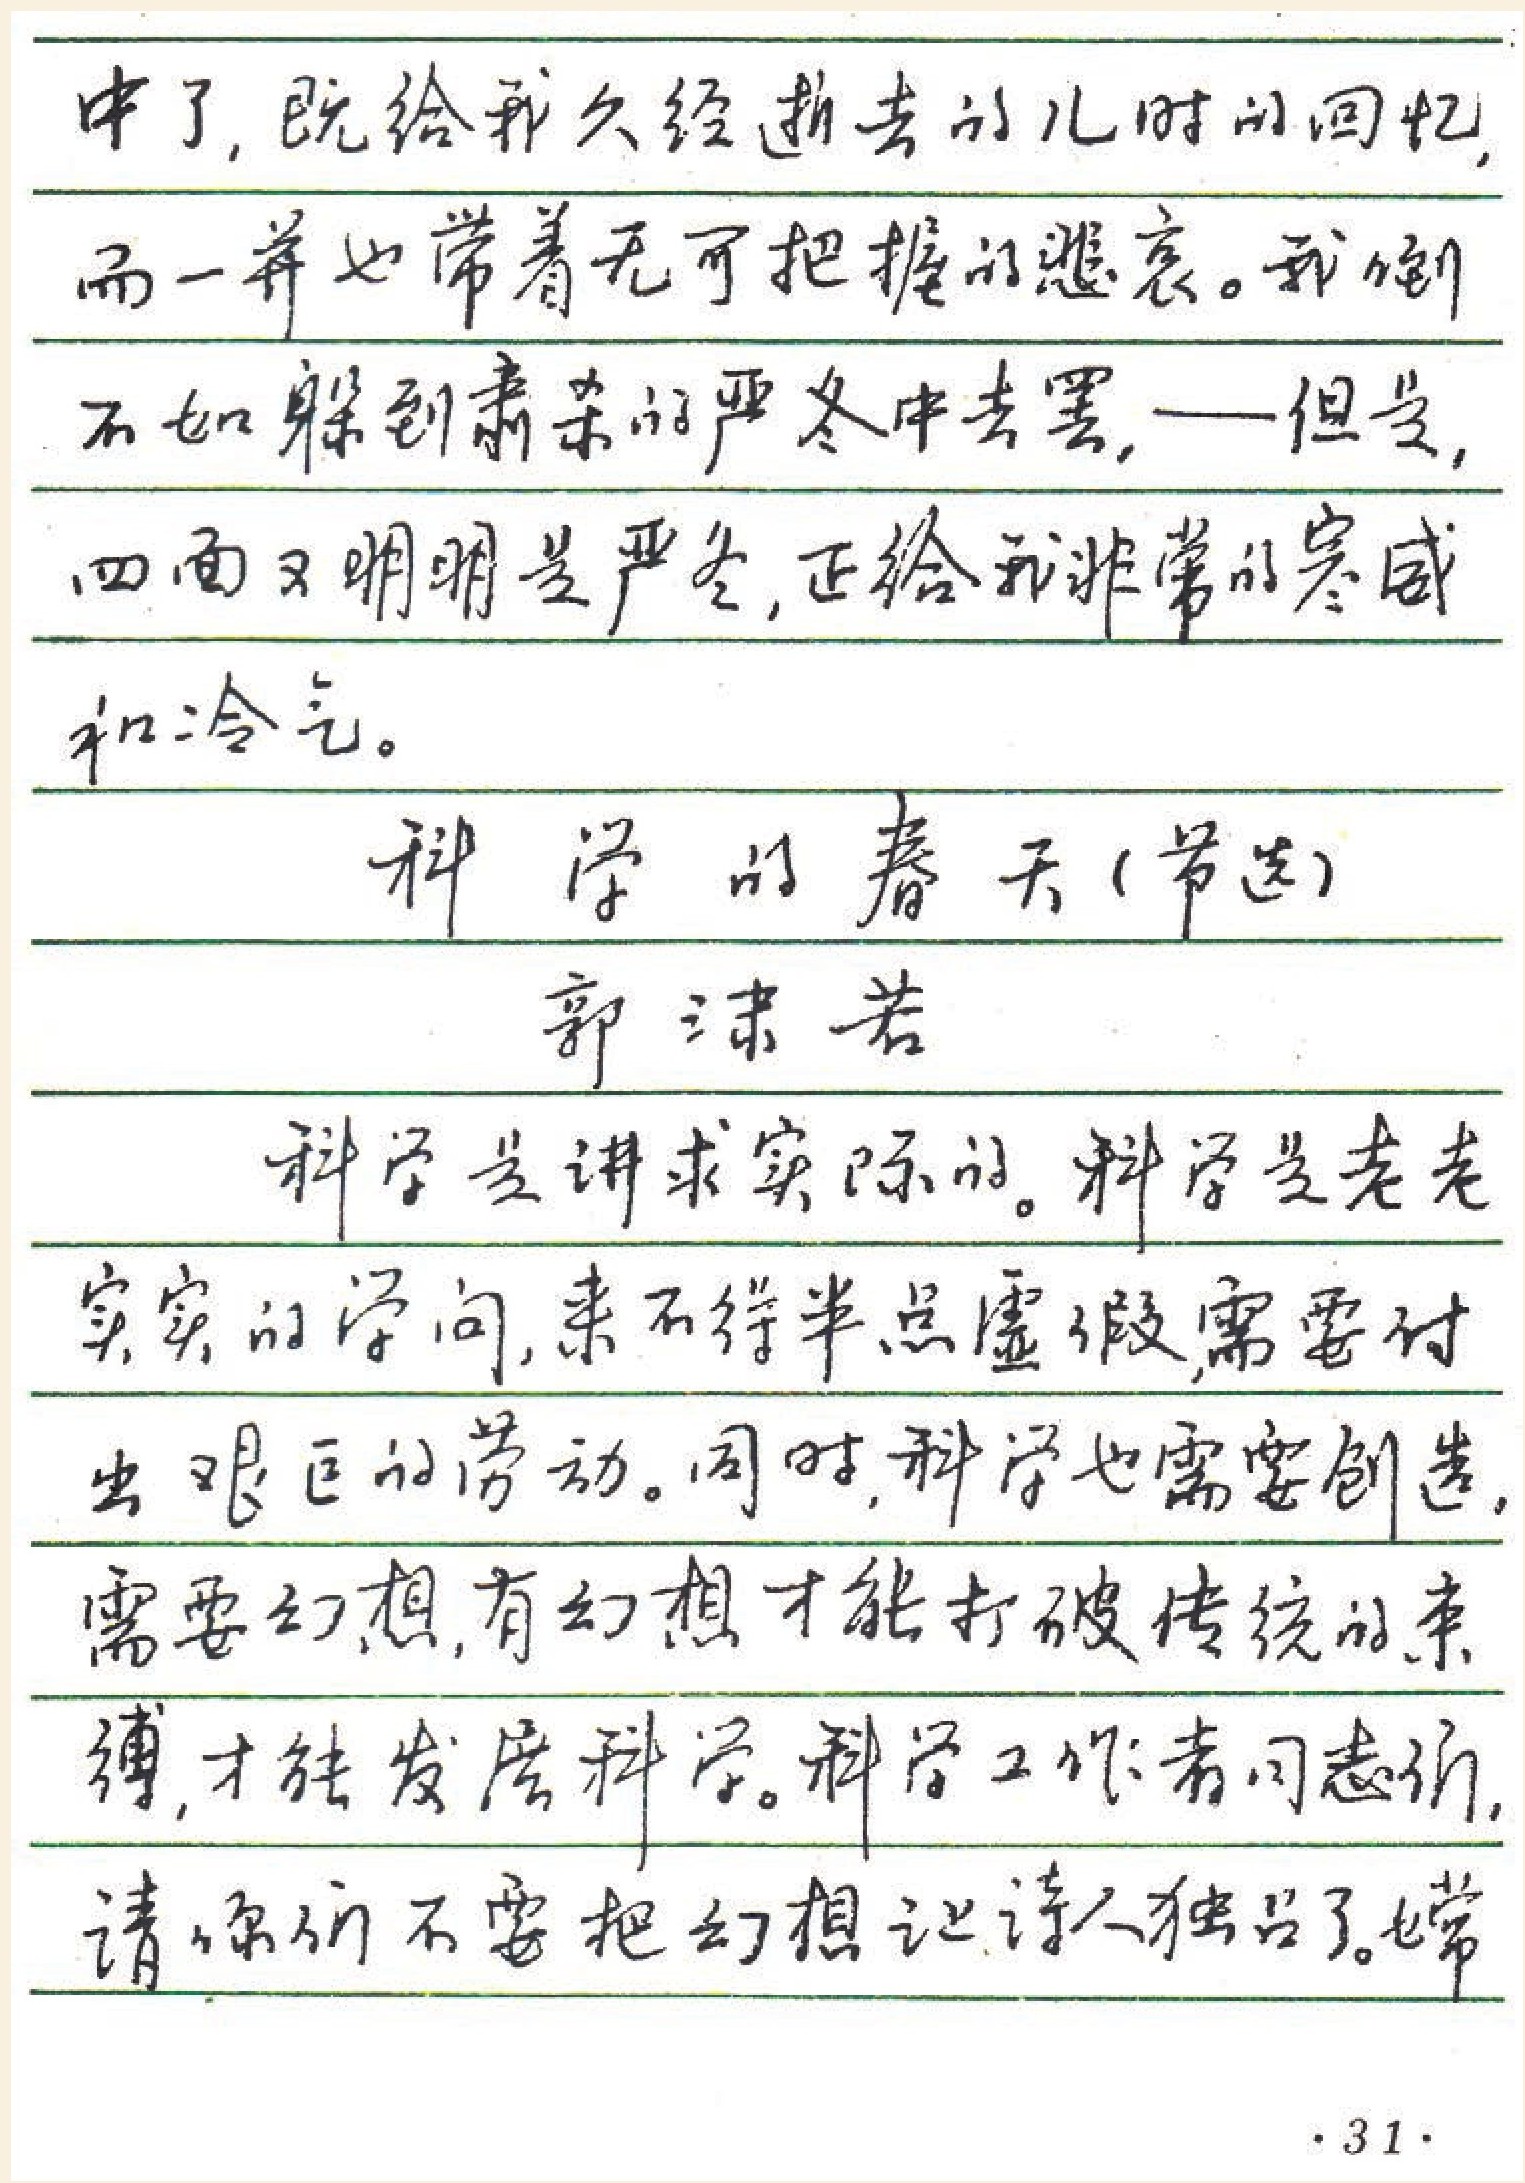 中了，既给我久经逝去的儿时的回忆，
而一并也带着无可把握的悲哀。我倒
不如躲到肃杀的严冬中去罢，——但是，
四面又明明是严冬，正给我非常的寒威
和冷气。
科学的春天（节选）
郭沫若
科学是讲求实际的。科学是老老
实实的学问，来不得半点虚假，需要付
出艰巨的劳动。同时，科学也需要创造，
需要幻想，有幻想才能打破传统的束
缚，才能发展科学。科学工作者同志们，
请你们不要把幻想让诗人独占了。嫦
·31·